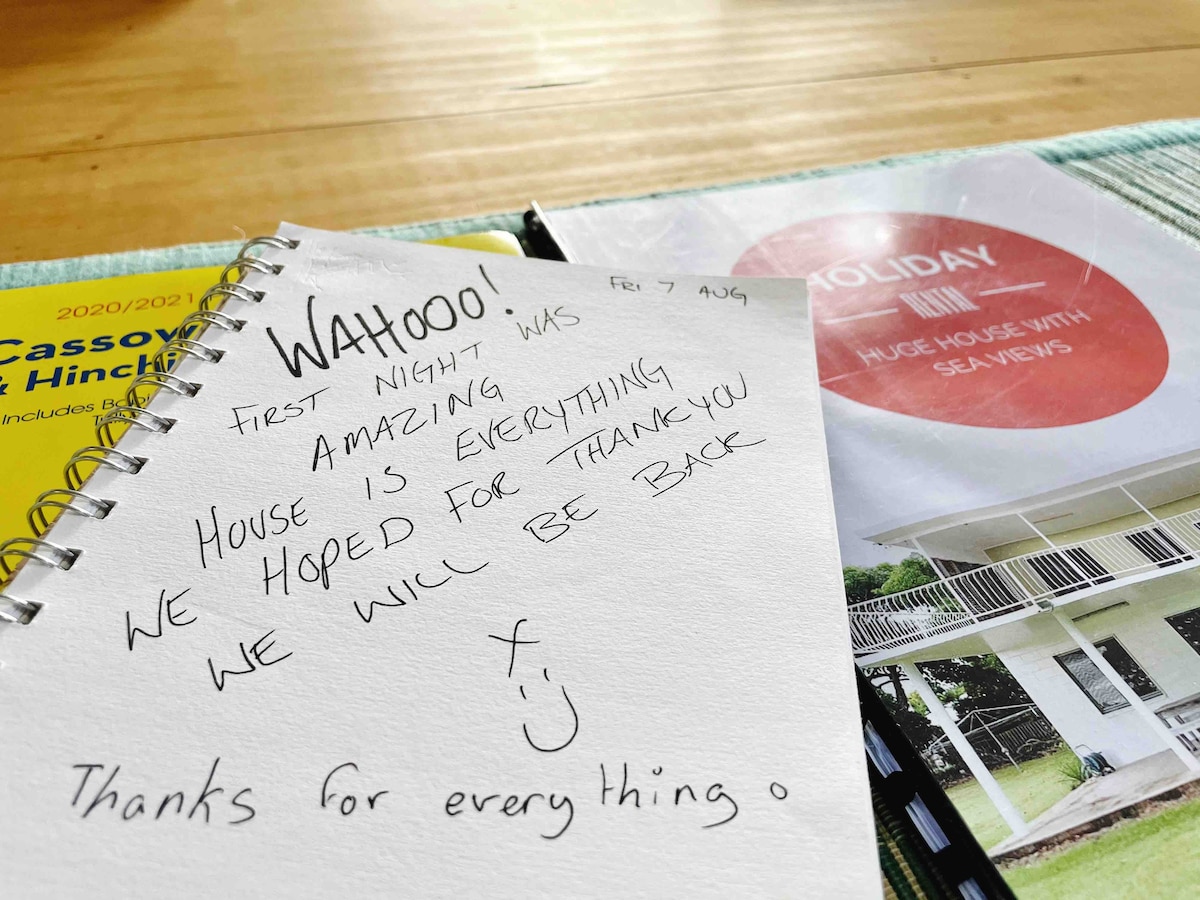 WAHOOO!
FRI 7 AUG
FIRST NIGHT WAS
AMAZING
HOUSE IS EVERYTHING
WE HOPED FOR THANK YOU
WE WILL BE BACK
x
:)
Thanks for everything o
2020/2021
Cassow
& Hinchi
Includes
HOLIDAY
RENTAL
HUGE HOUSE WITH
SEA VIEWS